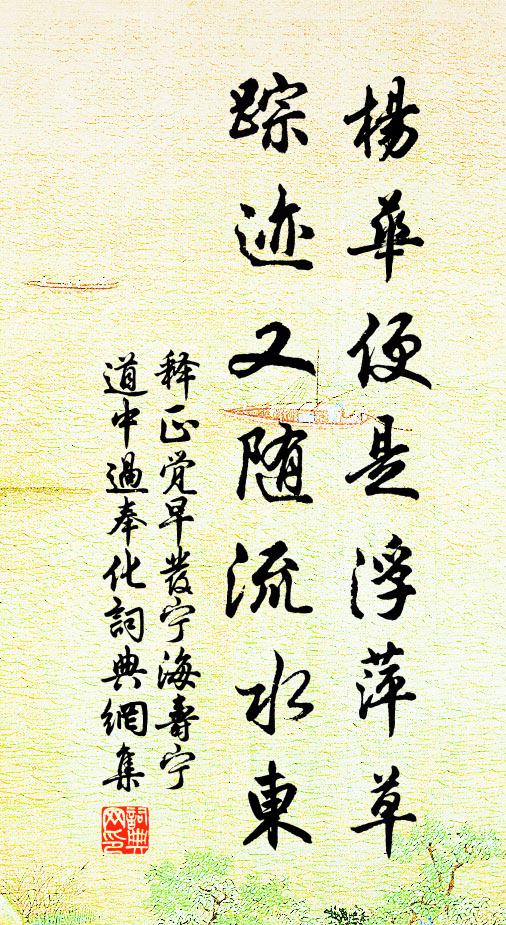 楊華便是浮萍草
踪迹又随流水東
释正觉早發宁海壽宁
道中過奉化詞典網集
詞典网印